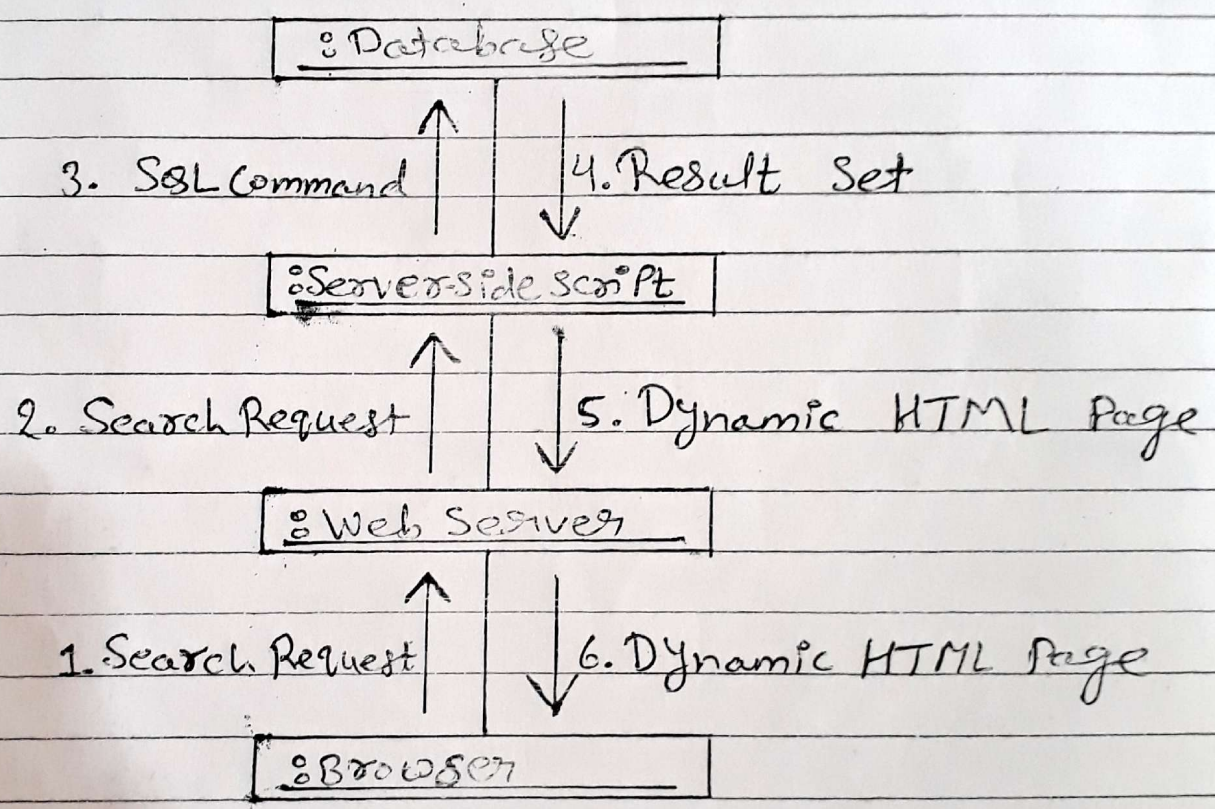 :Database
3. SQL Command 4. Result Set
:Server-side script
2. Search Request 5. Dynamic HTML Page
:Web Server
1. Search Request 6. Dynamic HTML Page
:Browser